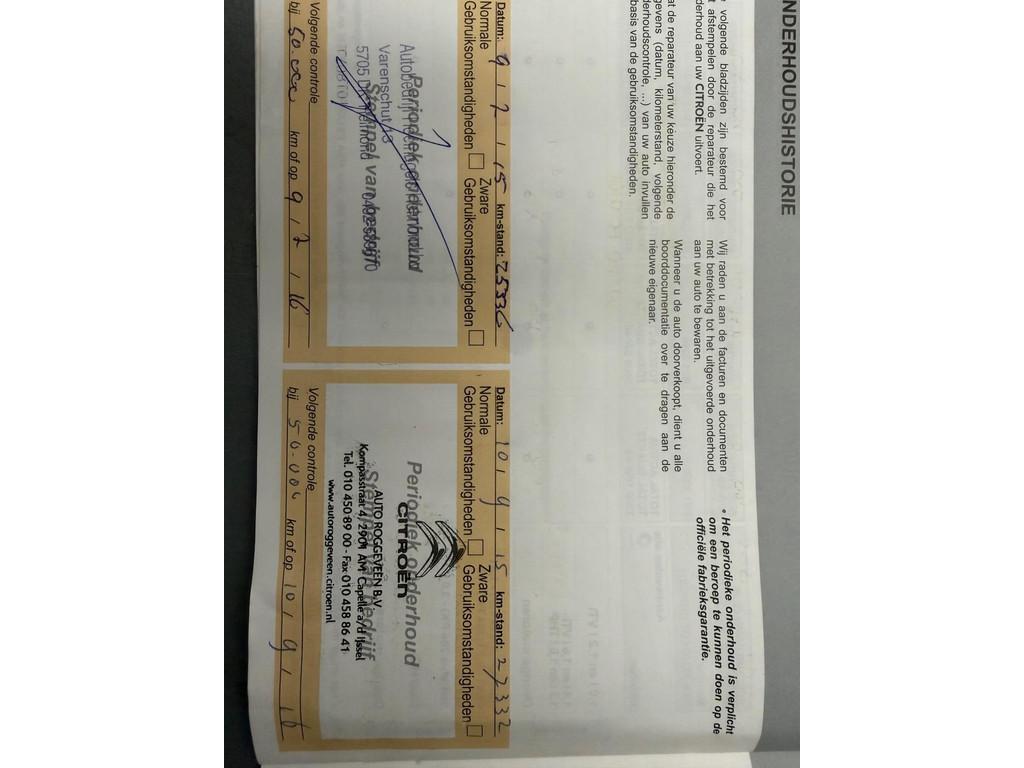 NDERHOUDSHISTORIE
volgende bladzijden zijn bestemd voor
t afstempelen door de reparateur die het
derhoud aan uw CITROËN uitvoert.
at de reparateur van uw keuze hieronder de
gevens (datum, kilometerstand, volgende
derhoudscontrole, ...) van uw auto invullen
basis van de gebruiksomstandigheden.
Wij raden u aan de facturen en documenten
met betrekking tot het uitgevoerde onderhoud
aan uw auto te bewaren.
Wanneer u de auto doorverkoopt, dient u alle
boorddocumentatie over te dragen aan de
nieuwe eigenaar.
• Het periodieke onderhoud is verplicht
om een beroep te kunnen doen op de
officiële fabrieksgarantie.
Datum: 9 / 2 / 15 km-stand: 25336
Normale Zware
Gebruiksomstandigheden Gebruiksomstandigheden
Periodiek onderhoud
Stempel van bedrijf
Autobedrijf
Varenschut 13
5705 Helmond
Volgende controle
bij 50.000 km of op 9 / 2 / 16
Datum: 10 / 9 / 15 km-stand: 27332
Normale Zware
Gebruiksomstandigheden Gebruiksomstandigheden
Periodiek onderhoud
Stempel van bedrijf
CITROËN
AUTO ROGGEVEEN B.V.
Kompasstraat 4, 2901 AM Capelle a/d IJssel
Tel. 010 450 89 00 - Fax 010 458 86 41
www.autoroggeveen.citroen.nl
Volgende controle
bij 50.000 km of op 10 / 9 / 16